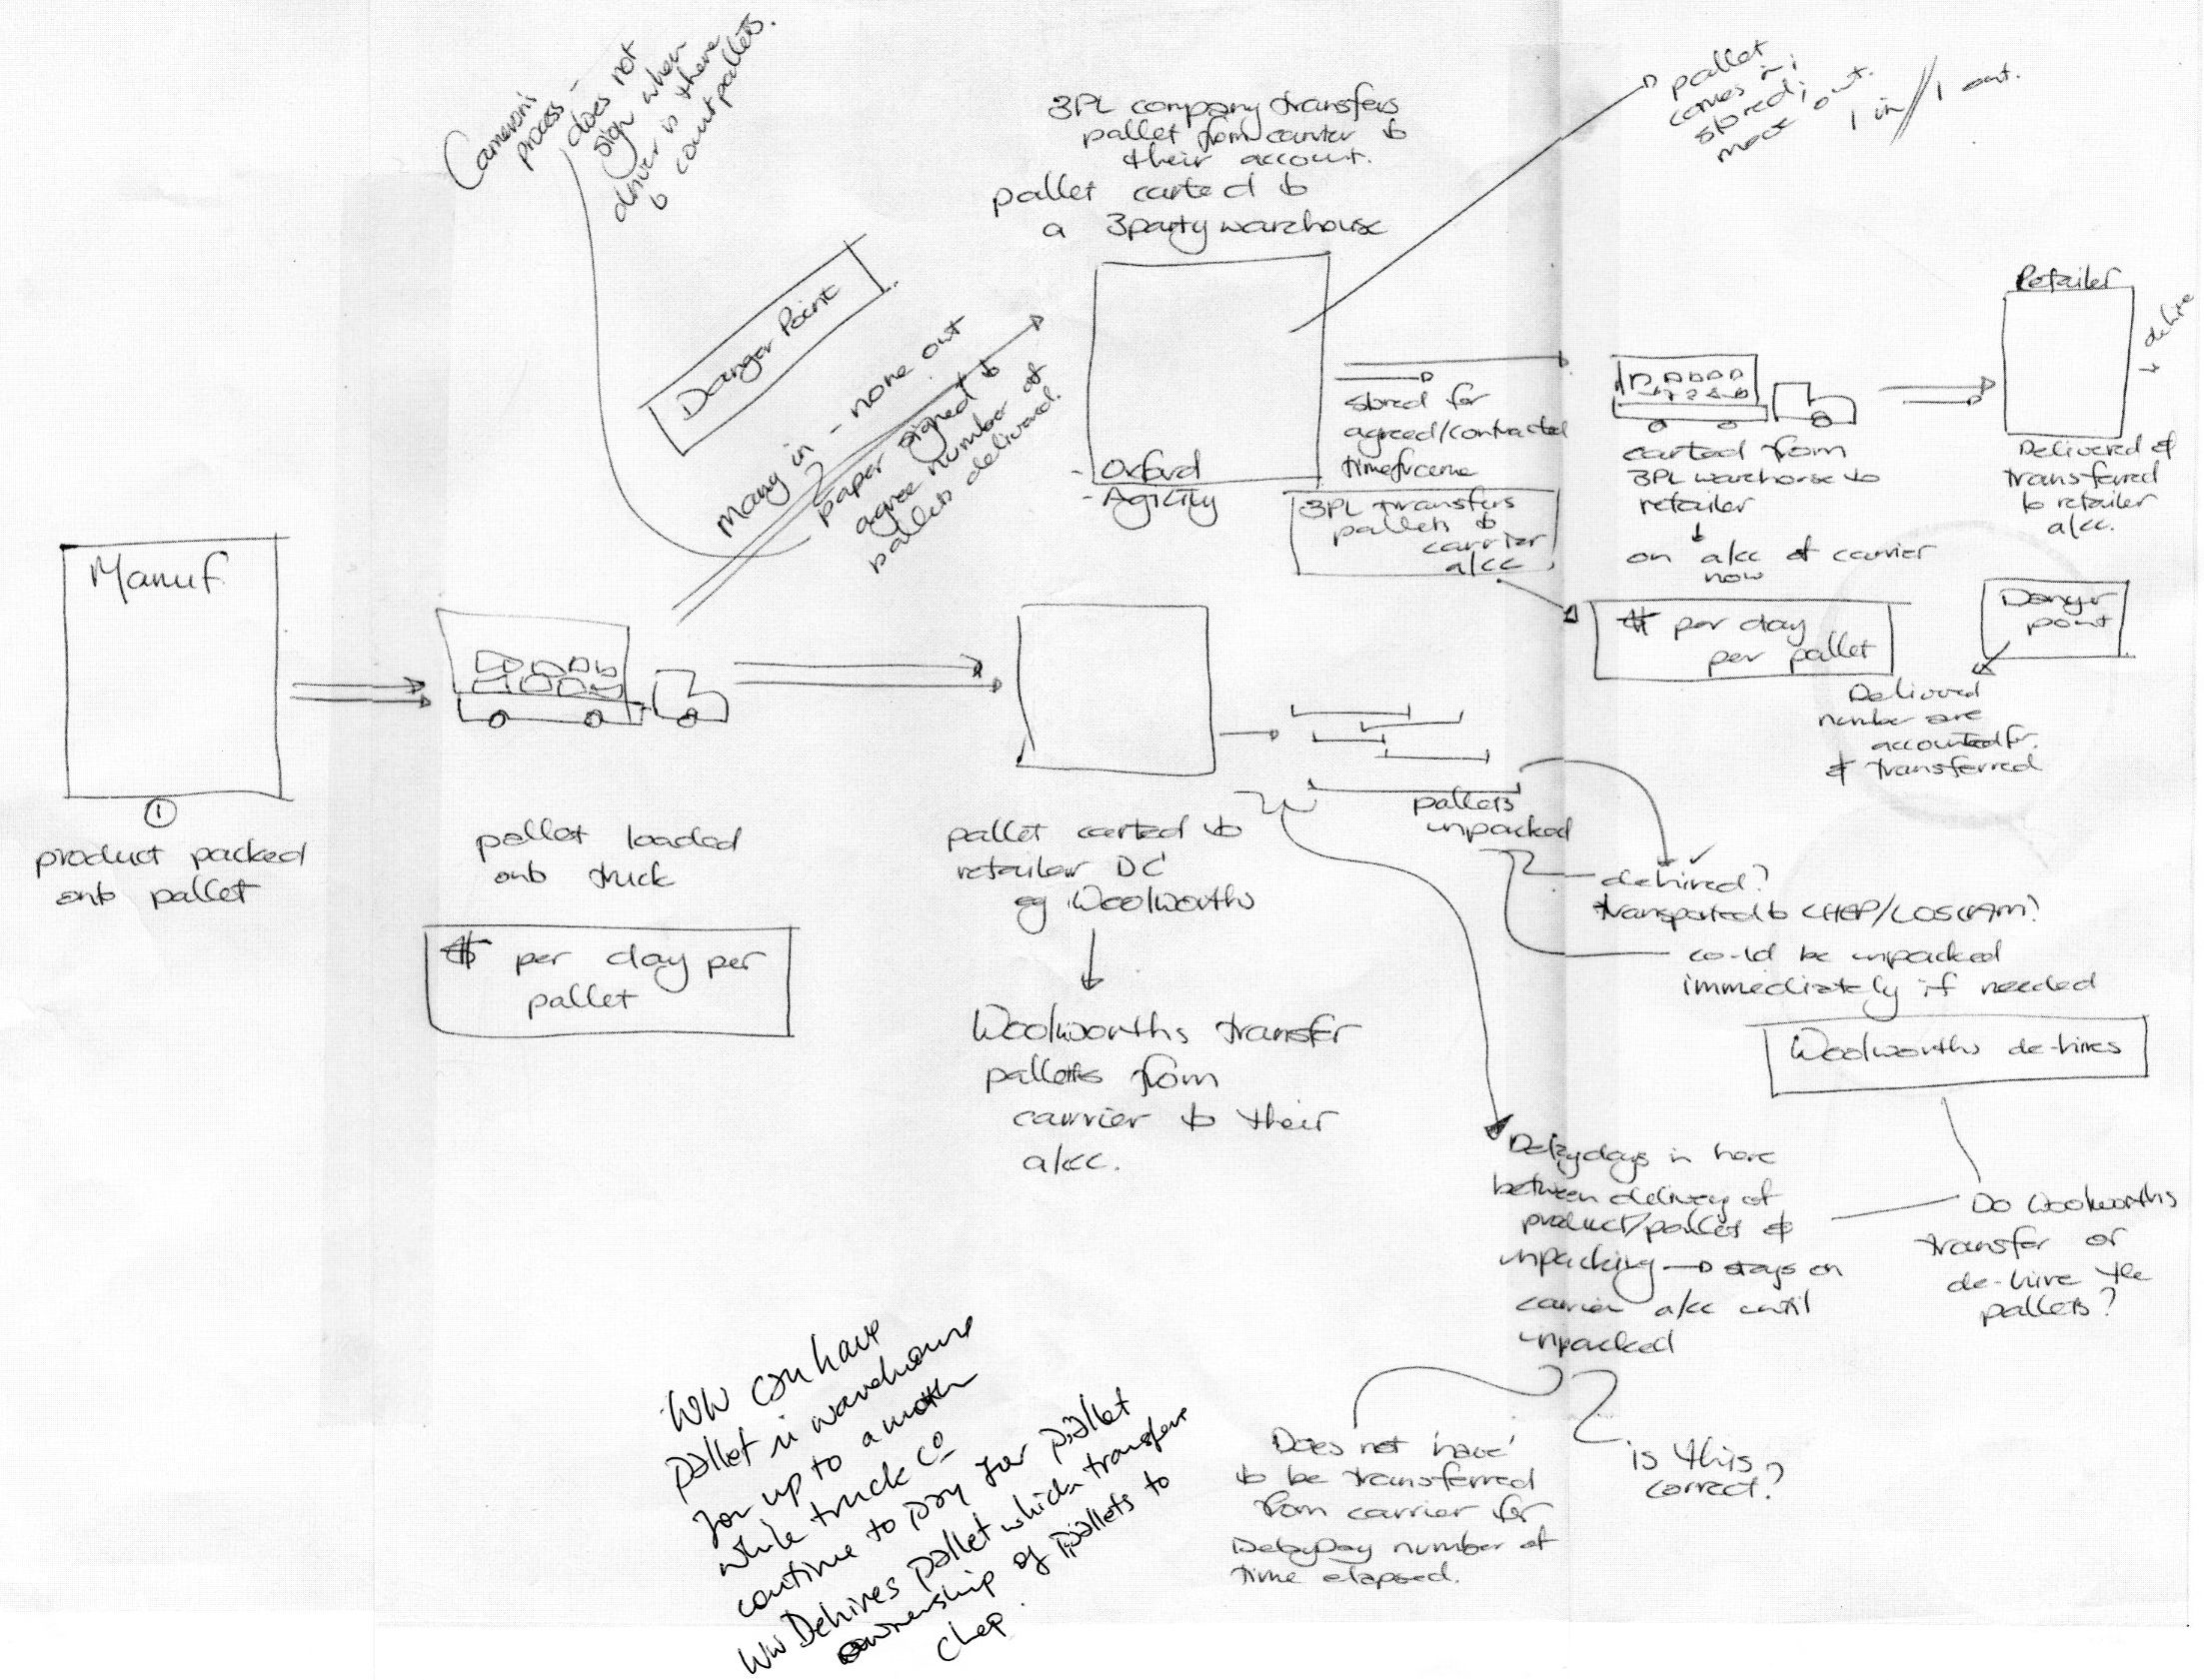 Cameron's
process -
does not
sign when
driver is there
to count pallets.
Danger Point
many in - none out
paper signed to
agree number of
pallets delivered.
3PL company transfers
pallet from carrier to
their account.
pallet carted to
a 3party warehouse
- Oxford
- Agility
pallet
comes in;
stored;
moved out.
1 in // 1 out.
stored for
agreed/contracted
timeframe
3PL transfers
pallets to
carrier
a/cc
carted from
3PL warehouse to
retailer
on a/cc of carrier
now
$ per day
per pallet
Retailer
dehire
Delivered &
transferred
to retailer
a/cc.
Danger
point
Delivered
number are
accounted for
& transferred
Manuf
1
product packed
onto pallet
pallet loaded
onto truck
$ per day per
pallet
pallet carted to
retailer DC
eg Woolworths
Woolworths transfer
pallets from
carrier to their
a/cc.
pallets
unpacked
dehired?
transported to CHEP/LOSCAM?
could be unpacked
immediately if needed
Woolworths de-hires
Do Woolworths
transfer or
de-hire the
pallets?
Delay days in here
between delivery of
product/pallet &
unpacking → stays on
carrier a/cc until
unpacked
Does not 'have'
to be transferred
from carrier for
Delay Day number of
time elapsed.
is this
correct?
WW can have
pallet in warehouse
for up to a month
while truck co
continue to pay for pallet
WW Dehires pallet which transfers
ownership of pallets to
Chep.